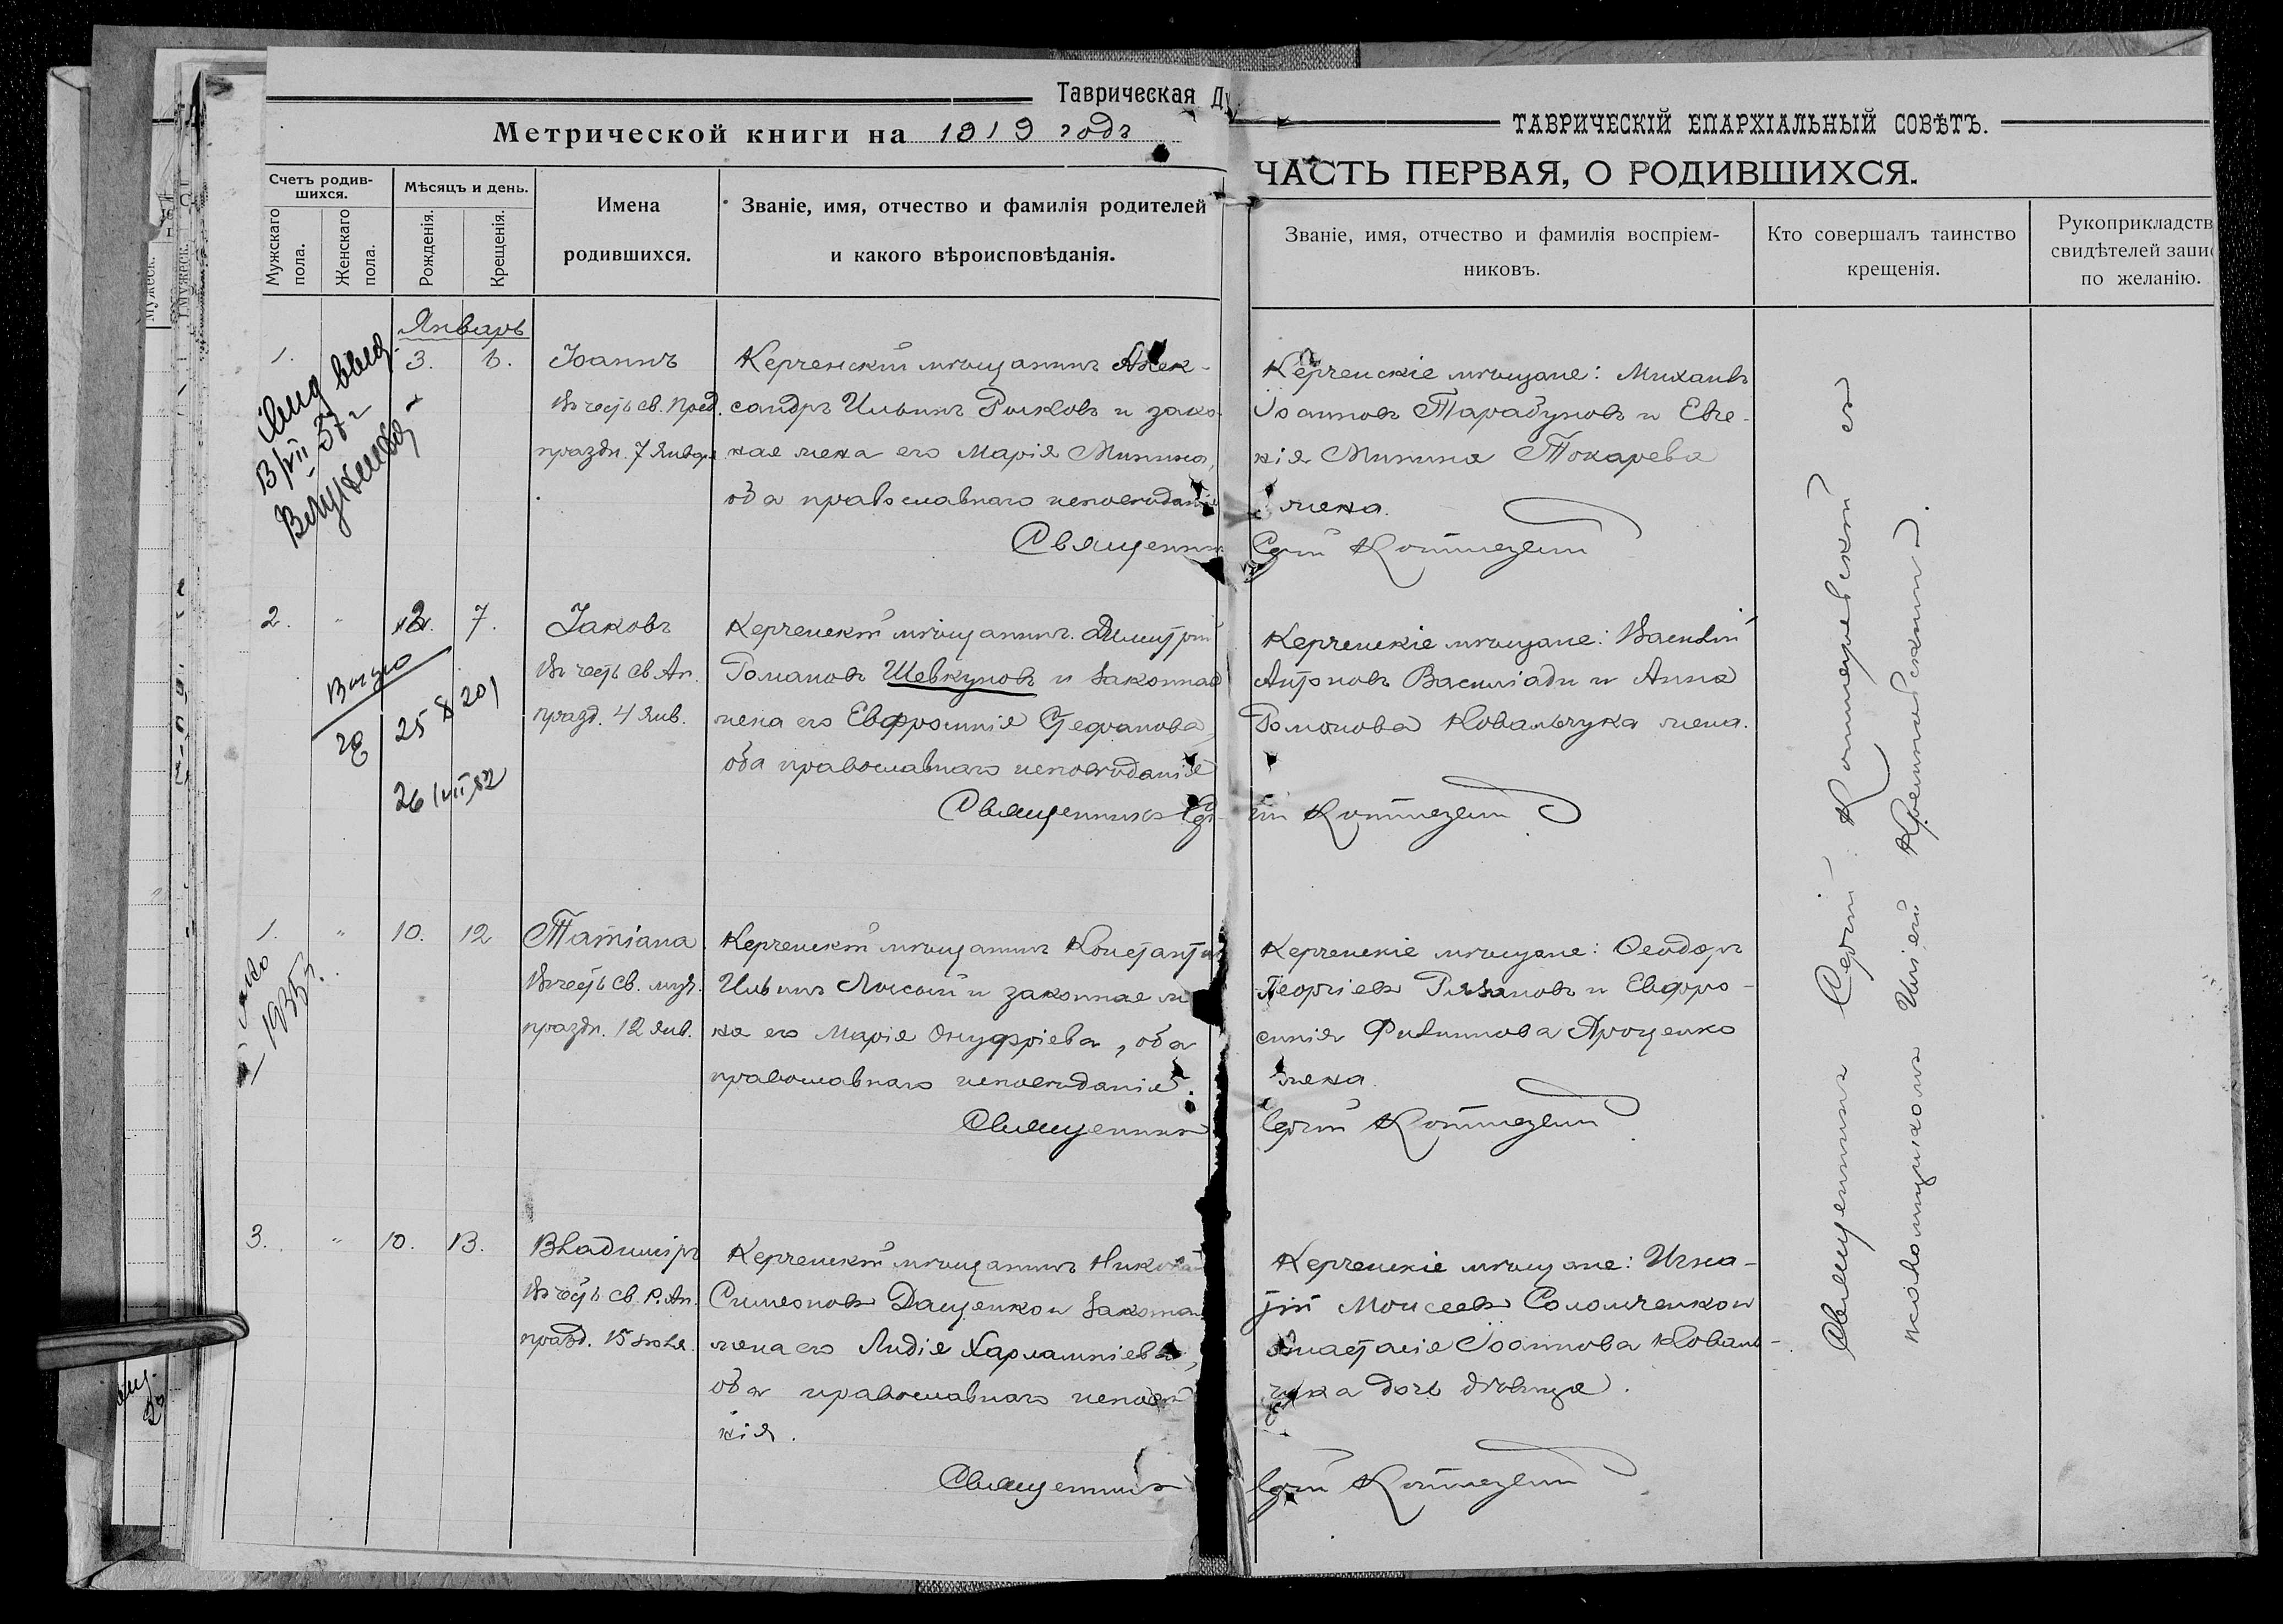 Таврическая Ду
Метрической книги на 1919 годъ
ТАВРИЧЕСКІЙ ЕПАРХІАЛЬНЫЙ СОВѢТЪ.
ЧАСТЬ ПЕРВАЯ, О РОДИВШИХСЯ.
Счетъ родив-
шихся.
Мужскаго пола.
Женскаго пола.
Мѣсяцъ и день.
Рожденія.
Крещенія.
Имена
родившихся.
Званіе, имя, отчество и фамилія родителей
и какого вѣроисповѣданія.
Званіе, имя, отчество и фамилія воспріем-
никовъ.
Кто совершалъ таинство
крещенія.
Рукоприкладств
свидѣтелей запис
по желанію.
Январь
1. 3. 6. Іоаннъ
Въ честь св. Пред.
праздн. 7 Января
Керченскій мѣщанинъ Алек-
сандръ Ильинъ Рыковъ и зако-
ная жена его Марія Минина,
оба православнаго исповѣданія
Керченскіе мѣщане: Михаилъ
Іоанновъ Тарабуновъ и Евге-
нія Минина Токарева
жена.
Священник Сергій
2. " 2. 7. Іаковъ
Въ честь св. Ап.
празд. 4 Янв.
25 X 20
26/VII 52
Керченскій мѣщанинъ Димитрій
Романовъ Шевкуновъ и законная
жена его Евфросинія Стефанова,
оба православнаго исповѣданія
Керченскіе мѣщане: Василій
Антоновъ Василіади и Анна
Романова Ковальчука жена.
Священникъ Сергій
1. " 10. 12 Татіана
Въ честь св. муч.
праздн. 12 Янв.
1935 г.
Керченскій мѣщанинъ Константинъ
Ильинъ Лысый и законная же
на его Марія Онуфріева, оба
православнаго исповѣданія.
Керченскіе мѣщане: Ѳеодоръ
Георгіевъ Рязановъ и Евфро-
синія Филиппова Проценко
жена.
Священникъ Сергій
3. " 10. 13. Владиміръ
Въ честь св. Р. Ап.
празд. 15 Іюля.
Керченскій мѣщанинъ Николай
Симеоновъ Дащенко и законная
жена его Лидія Харлампіева,
оба православнаго исповѣ
нія.
Керченскіе мѣщане: Игна-
тій Моисеевъ Соломченко и
Анастасія Іоаннова Коваль-
чука дочь дѣвица.
Священникъ Сергій
Священникъ Сергій
псаломщикомъ